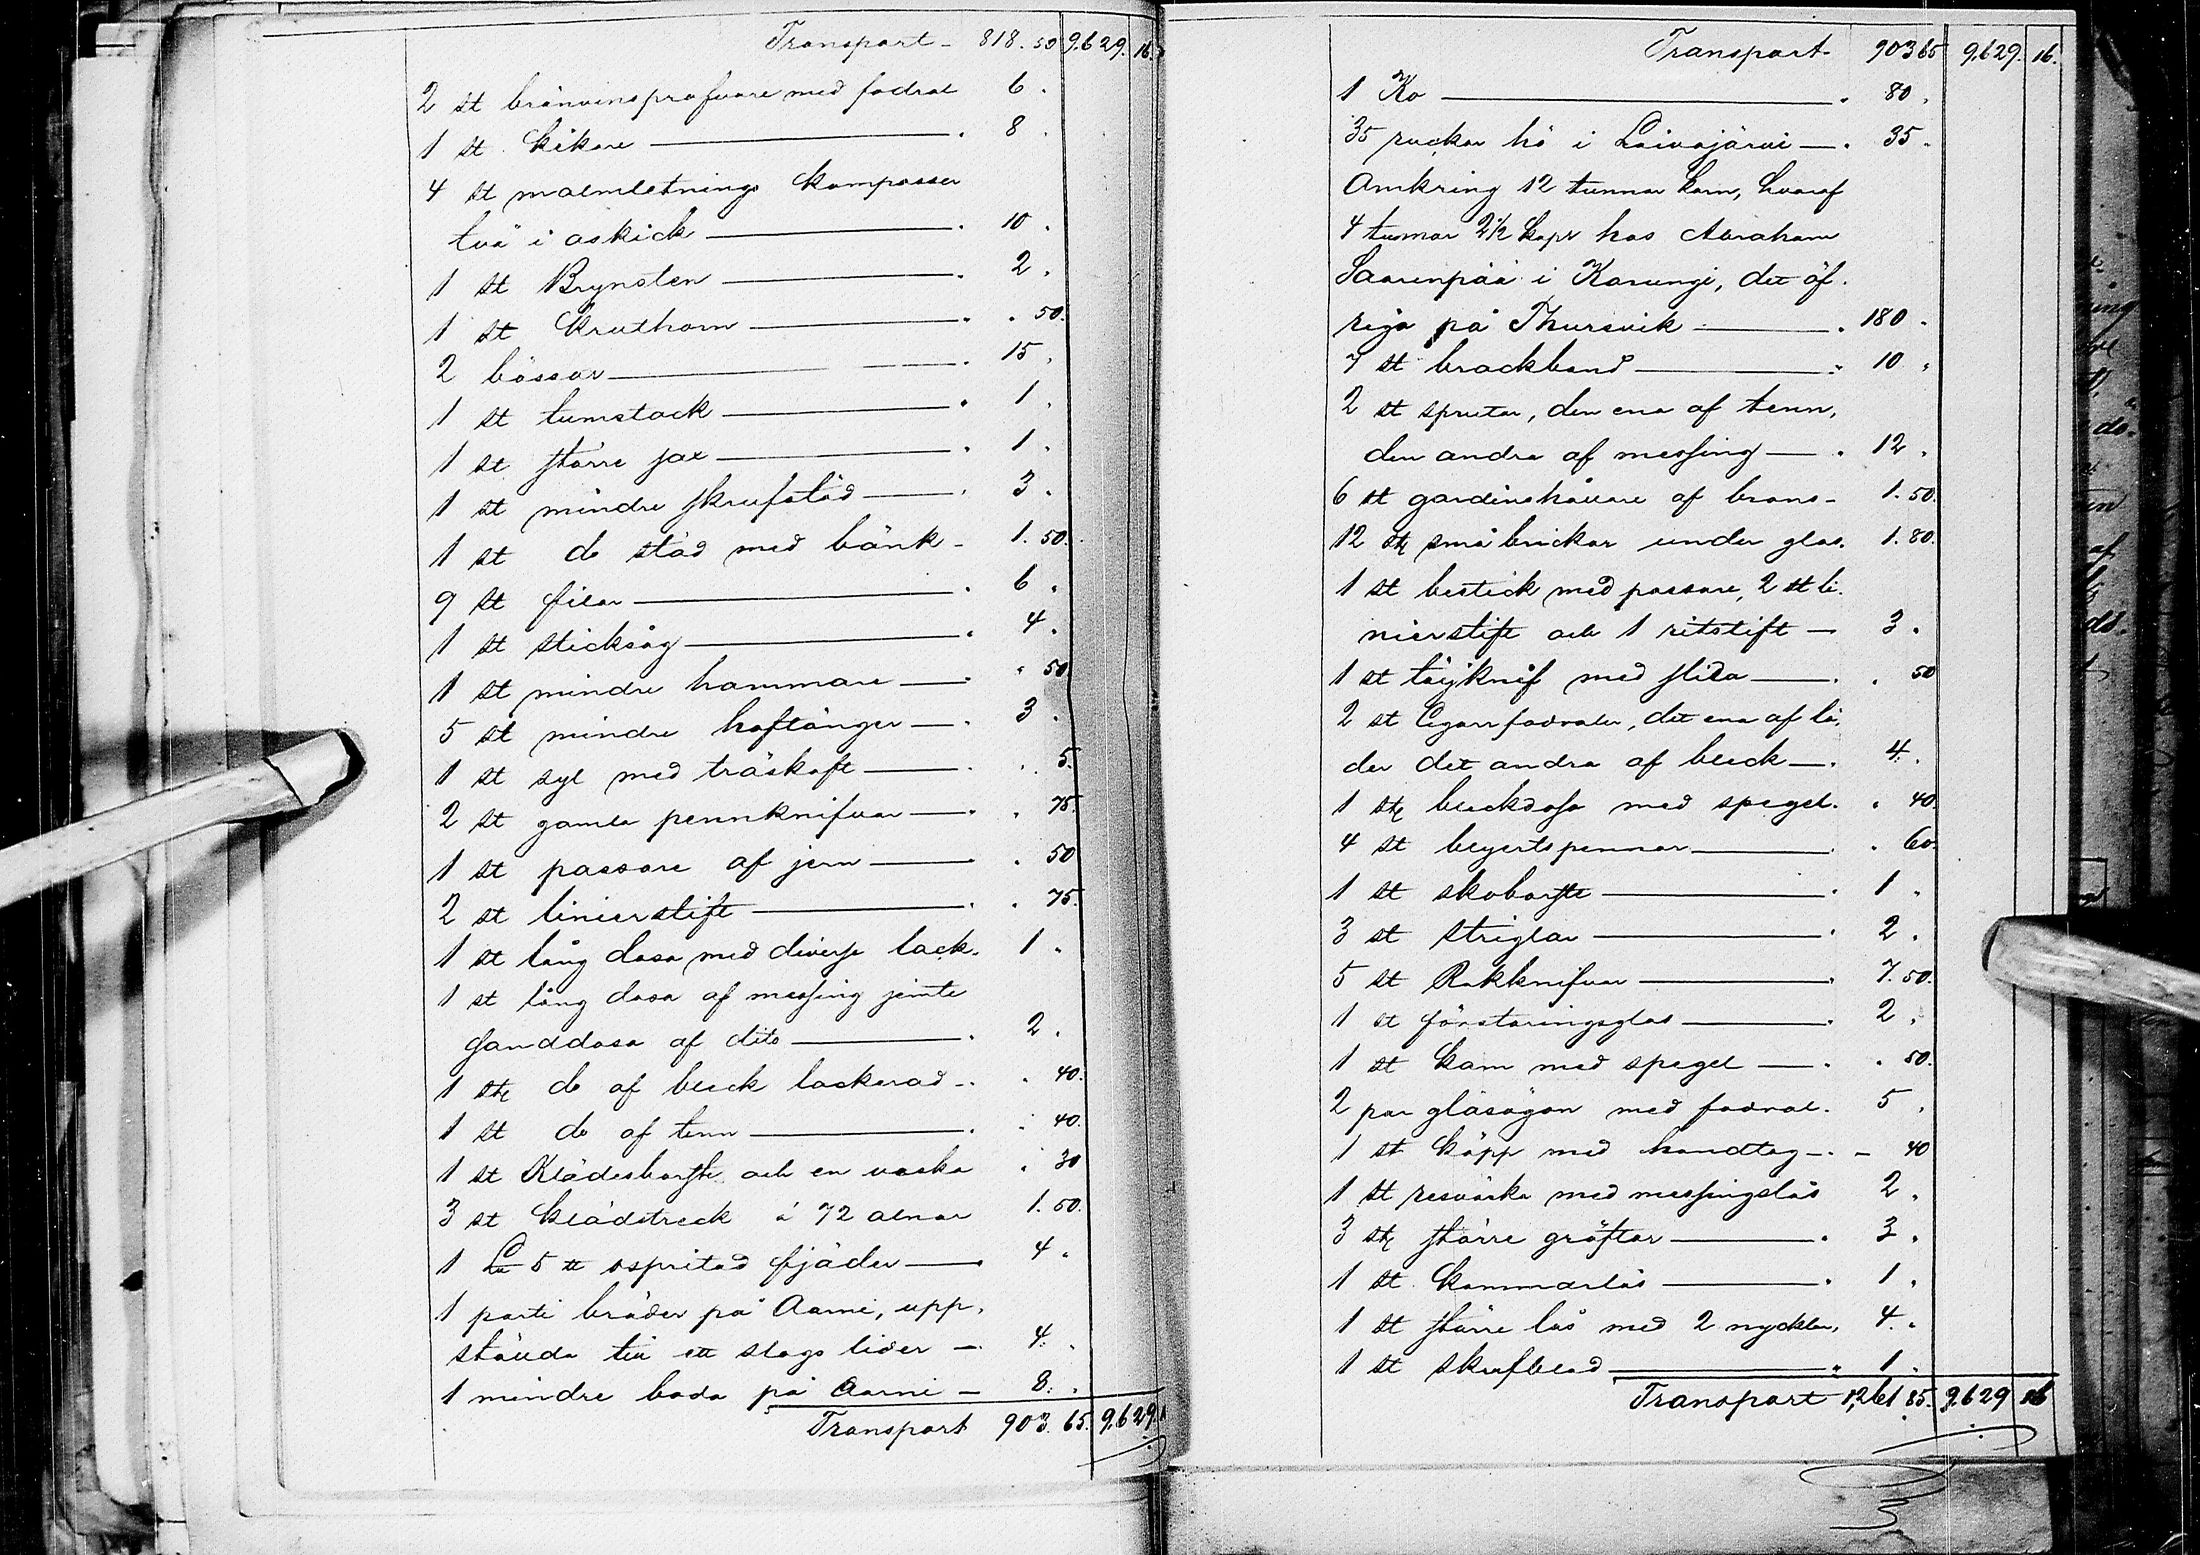 Transport - 818. 50 9.629. 16.
2 st bränvinsprofvare med fodral 6.
1 st kikare 8.
4 st malmletnings kompasser
två i oskick 10.
1 st Brynsten 2.
1 st Kruthorn 50.
2 bössor 15.
1 st tumstock 1.
1 st större sax 1.
1 st mindre skrufstäd 3.
1 st do städ med bänk - 1.50.
9 st filar 6.
1 st sticksåg 4.
1 st mindre hammare 50
5 st mindre hoftänger 3.
1 st syl med träskaft 5.
2 st gamla pennknifvar 75.
1 st passare af jern 50
2 st linierstift 75.
1 st lång dosa med diverse lack. 1.
1 st lång dosa af messing jemte
sanddosa af dito 2.
1 st do af bleck lackerad 40.
1 st do af tenn 40.
1 st Klädesborste och en vaska 30
3 st klädstreck à 72 alnar 1.50.
1 L 5 ℔ ospritad fjäder 4.
1 parti bräder på Aarni, upp-
stälda till ett slags lider 4.
1 mindre boda på Aarni 8.
Transport 903. 65. 9.629.
Transport 903 65 9.629. 16.
1 Ko 80.
35 ruckor hö i Loivajärvi 35.
Omkring 12 tunnor korn, hvaraf
4 tunnor 2 1/2 kapr hos Abraham
Saarenpää i Karungi, det öf-
riga på Thursvik 180.
7 st brackband 10.
2 st sprutor, den ena af tenn,
den andra af messing 12.
6 st gardinshållare af brons - 1.50.
12 st små brickor under glas. 1.80.
1 st bestick med passare, 2 st li-
nierstift och 1 ritstift 3.
1 st täljknif med slida 50
2 st Cigarrfodraler, det ena af lä-
der det andra af bleck 4.
1 st bleckdosa med spegel. 40.
4 st blyertspennor 60.
1 st skoborste 1.
3 st striglar 2.
5 st Rakknifvar 7.50.
1 st förstoringsglas 2.
1 st kam med spegel 50.
2 par glasögon med fodral. 5.
1 st käpp med handtag 40
1 st resväska med messingslås 2.
3 st större gröftar 3.
1 st Kammarlås 1.
1 st större lås med 2 nycklar, 4.
1 st skrufblad 1.
Transport 1,261 85. 9.629 16